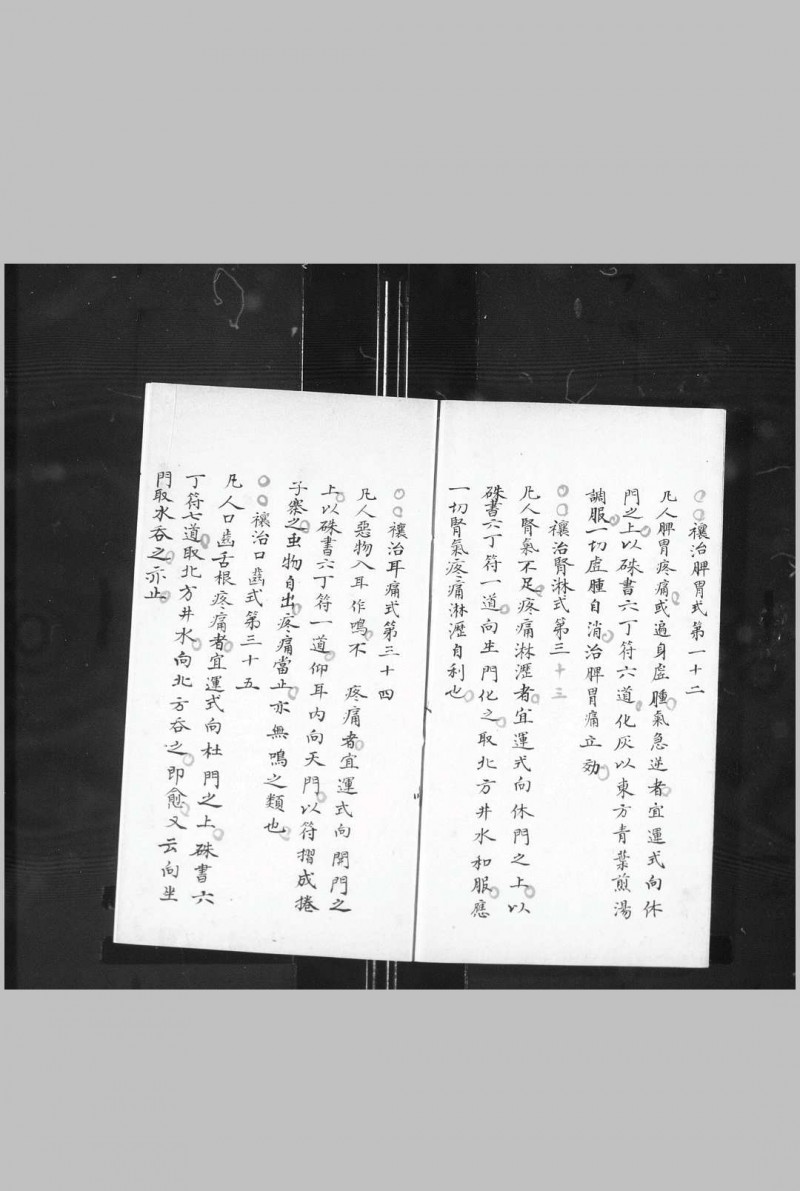 ○○禳治脾胃式第一十二
凡人脾胃疼痛或遍身虛腫氣急逆者宜運式向休
門之上以硃書六丁符六道化灰以東方青葉煎湯
調服一切虛腫自消治脾胃痛立効
○○禳治腎淋式第三十三
凡人腎氣不足疼痛淋瀝者宜運式向休門之上以
硃書六丁符一道向生門化之取北方井水和服應
一切腎氣疼痛淋瀝自利也
○○禳治耳痛式第三十四
凡人惡物入耳作鳴不 疼痛者宜運式向開門之
上以硃書六丁符一道仰耳內向天門以符摺成捲
子寨之虫物自出疼痛當止亦無鳴之類也
○○禳治口齒式第三十五
凡人口齒舌根疼痛者宜運式向杜門之上硃書六
丁符七道取北方井水向北方吞之即愈又云向生
門取水吞之亦止